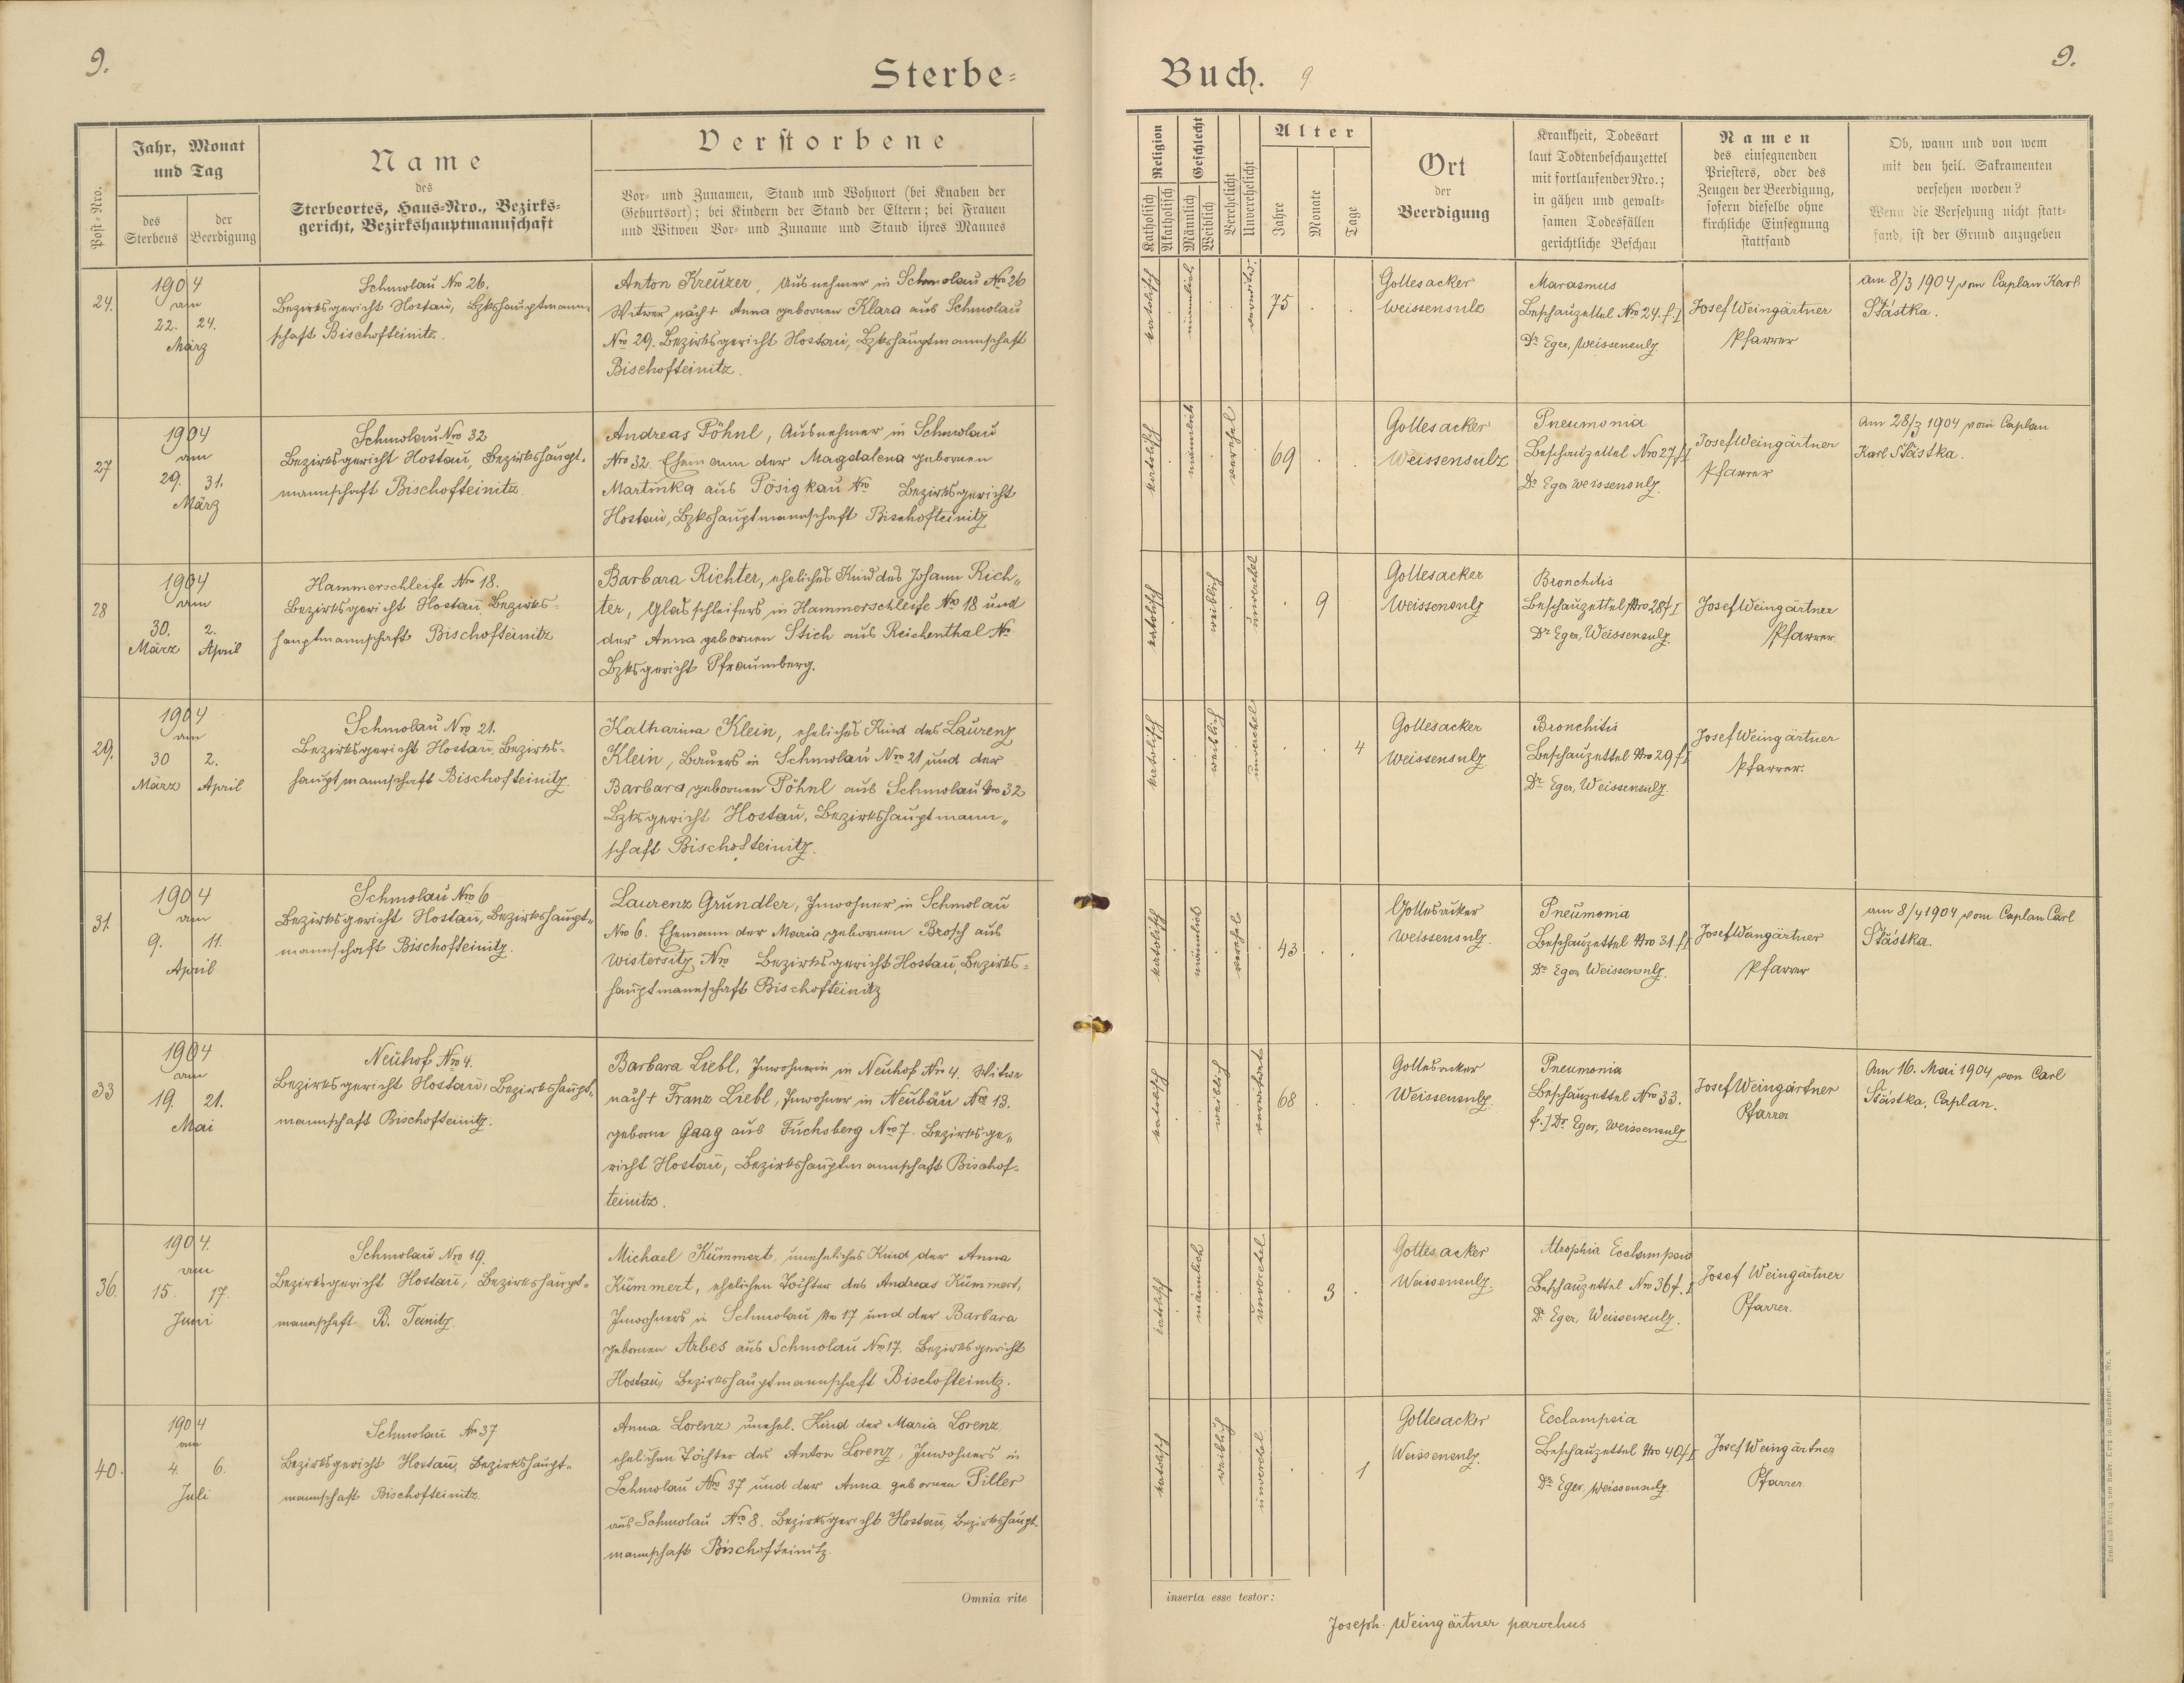 9.
Sterbe=
Buch.
9
9.
Post=Nro.
Jahr, Monat
und Tag
des
Sterbens
der
Beerdigung
Name
des
Sterbeortes, Haus=Nro., Bezirks=
gericht, Bezirkshauptmannschaft
Verstorbene
Vor= und Zunamen, Stand und Wohnort (bei Knaben der
Geburtsort); bei Kindern der Stand der Eltern; bei Frauen
und Witwen Vor= und Zuname und Stand ihres Mannes
Religion
Katholisch
Akatholisch
Geschlecht
Männlich
Weiblich
Verehelicht
Unverehelicht
Alter
Jahre
Monate
Tage
Ort
der
Beerdigung
Krankheit, Todesart
laut Todtenbeschauzettel
mit fortlaufender Nro.;
in gähen und gewalt=
samen Todesfällen
gerichtliche Beschau
Namen
des einsegnenden
Priesters, oder des
Zeugen der Beerdigung,
sofern dieselbe ohne
kirchliche Einsegnung
stattfand
Ob, wann und von wem
mit den heil. Sakramenten
versehen worden?
Wenn die Versehung nicht statt=
fand, ist der Grund anzugeben
24.
1904
am
22. 24.
März
Schmolau Nro 26.
Bezirksgericht Hostau, Bzkshauptmann=
schaft Bischofteinitz.
Anton Kreuzer, Ausnehmer in Schmolau Nro 26
Witwer nach † Anna gebornen Klara aus Schmolau
Nro 29. Bezirksgericht Hostau, Bzkshauptmannschaft
Bischofteinitz.
katolisch
männlich
verwitw.
75 . .
Gottesacker
Weissensulz
Marasmus
Beschauzettel Nro 24. f. I
Dr Eger, Weissensulz.
Josef Weingärtner
Pfarrer
am 8/3 1904 vom Caplan Karl
Stástka.
27
1904
am
29. 31.
März
Schmolau Nro 32
Bezirksgericht Hostau, Bezirkshaupt=
mannschaft Bischofteinitz
Andreas Pöhnl, Ausnehmer in Schmolau
Nro 32. Ehemann der Magdalena gebornen
Martinka aus Pösigkau No Bezirksgericht
Hostau, Bzkshauptmannschaft Bischofteinitz
katolisch
männlich
verehel
69 . .
Gottesacker
Weissensulz
Pneumonia
Beschauzettel Nro 27 f I
Dr Eger Weissensulz.
Josef Weingärtner
Pfarrer
Am 28/3 1904 vom Caplan
Karl Stástka.
28
1904
am
30. 2.
März April
Hammerschleife Nro 18.
Bezirksgericht Hostau, Bezirks=
hauptmannschaft Bischofteinitz
Barbara Richter, eheliches Kind des Johann Rich„
ter, Glasschleifers in Hammerschleife No 18 und
der Anna gebornen Stich aus Reichenthal No
Bzksgericht Pfraumberg.
katolisch
weiblich
unverehel
. 9
Gottesacker
Weissensulz
Bronchitis
Beschauzettel Nro 28 f I
Dr Eger, Weissensulz.
Josef Weingärtner
Pfarrer.
29.
1904
am
30 2.
März April
Schmolau Nro 21.
Bezirksgericht Hostau, Bezirks=
hauptmannschaft Bischofteinitz.
Katharina Klein, eheliches Kind des Laurenz
Klein, Bauers in Schmolau Nro 21 und der
Barbara gebornen Pöhnl aus Schmolau Nro 32
Bzksgericht Hostau, Bezirkshauptmann„
schaft Bischofteinitz.
katolisch
weiblich
unverehel
. . 4
Gottesacker
Weissensulz
Bronchitis
Beschauzettel Nro 29 f I
Dr Eger, Weissensulz.
Josef Weingärtner
Pfarrer.
31.
1904
am
9. 11.
April
Schmolau Nro 6
Bezirksgericht Hostau, Bezirkshaupt„
mannschaft Bischofteinitz.
Laurenz Gründler, Inwohner in Schmolau
Nro 6. Ehemann der Maria gebornen Brosch aus
Wistersitz, Nro Bezirksgericht Hostau, Bezirks=
hauptmannschaft Bischofteinitz
katolisch
männlich
verehel
43 . .
Gottesacker
Weissensulz.
Pneumonia
Beschauzettel Nro 31. f I
Dr Eger, Weissensulz.
Josef Weingärtner
Pfarrer
am 8/4 1904 vom Caplan Carl
Stástka.
33
1904
am
19. 21.
Mai
Neuhof Nro 4.
Bezirksgericht Hostau, Bezirkshaupt„
mannschaft Bischofteinitz.
Barbara Liebl, Inwohnerin in Neuhof Nro 4. Witwe
nach † Franz Liebl, Inwohner in Neubäu Nro 13.
geborne Gaag aus Fuchsberg Nro 7. Bezirksge„
richt Hostau, Bezirkshauptmannschaft Bischof=
teinitz.
katolisch
weiblich
verwitwet
68 . .
Gottesacker
Weissensulz.
Pneumonia
Beschauzettel Nro 33.
f. I Dr Eger, Weissensulz
Josef Weingärtner
Pfarrer
Am 16. Mai 1904 von Carl
Stástka, Caplan.
36.
1904.
am
15. 17.
Juni
Schmolau Nro 19.
Bezirksgericht Hostau, Bezirkshaupt=
mannschaft B. Teinitz.
Michael Kümmert, uneheliches Kind der Anna
Kümmert, ehelichen Tochter des Andreas Kümmert,
Inwohners in Schmolau Nro 17 und der Barbara
gebornen Arbes aus Schmolau Nro 17. Bezirksgericht
Hostau, Bezirkshauptmannschaft Bischofteinitz.
katolisch
männlich
unverehel
. 3 .
Gottesacker
Weissensulz.
Atrophia Ecclampsia
Beschauzettel Nro 36 f. I
Dr Eger, Weissensulz.
Josef Weingärtner
Pfarrer.
40.
1904
am
4. 6.
Juli
Schmolau No 37
Bezirksgericht Hostau, Bezirkshaupt=
mannschaft Bischofteinitz.
Anna Lorenz unehel. Kind der Maria Lorenz,
ehelichen Tochter des Anton Lorenz, Inwohners in
Schmolau Nro 37 und der Anna gebornen Piller
aus Schmolau Nro 8. Bezirksgericht Hostau, Bezirkshaupt=
mannschaft Bischofteinitz.
katolisch
weiblich
unverehel
. . 1
Gottesacker
Weissensulz.
Ecclampsia
Beschauzettel Nro 40 f I
Dr Eger, Weissensulz.
Josef Weingärtner
Pfarrer.
Omnia rite
inserta esse testor:
Joseph. Weingärtner parochus